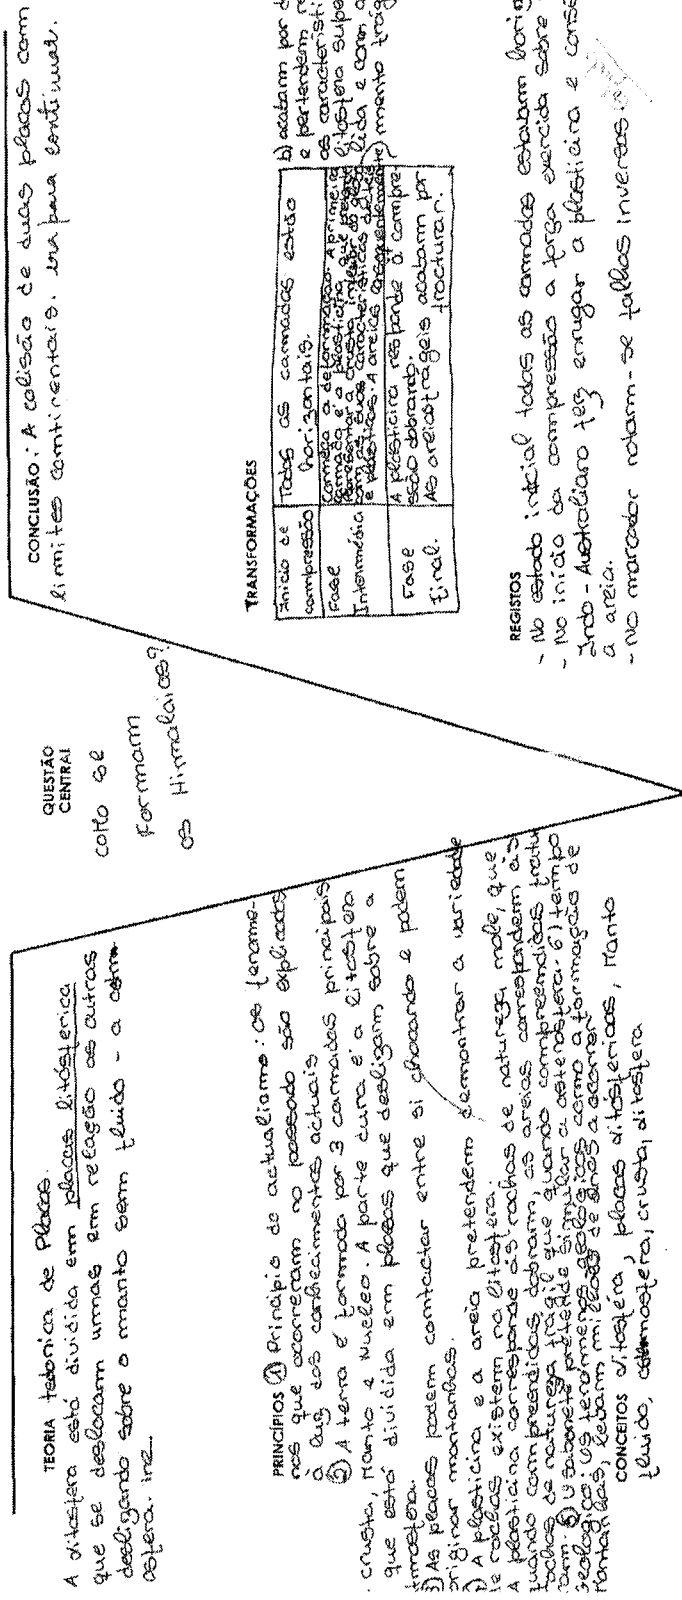 TEORIA tectónica de Placas.
A litosfera está dividida em placas litósferica
que se deslocam umas em relação as outras
deslizando sobre o manto semi fluido - a
osfera.
PRINCÍPIOS ① Princípio do actualismo: os fenome-
nos que ocorreram no passado são explicados
à luz dos conhecimentos actuais
② A terra é formada por 3 camadas principais
. crusta, Manto e Nucleo. A parte dura é a litosfera
que está dividida em placas que deslizam sobre a
tmosfera.
3) As placas podem contactar entre si chocando e podem
originar montanhas.
A plasticina e a areia pretendem demontrar a variedade
de rochas existem na litosfera.
A plasticina corresponde ás rochas de natureza mole, que
quando compreendidas dobram, as areias correspondem ás
rochas de natureza frágil que quando compreendidas fratu
ram. 5) O sabonete pretende simular a astenosfera. 6) tempo
geologico: Os fenómenos geologicos como a formação de
Montanhas, levam milhões de anos a ocorrer
CONCEITOS Litosféra, placas litosfericas, Manto
fluido, crusta, litosfera
QUESTÃO
CENTRAL
COMO se
Formam
os Himalaias?
CONCLUSÃO: A colisão de duas placas com
limites continentais. para continual.
TRANSFORMAÇÕES
Inicio de compressão Todas as camadas estão
horizontais.
Fase Intermédia Começa a deformação. A primeira
camada é a plasticina que
representar a crusta inferior
com as suas características dúcteis
e plásticas. A areias consequentemente
Fase Final. A plasticina responde à compre-
ssão dobrando.
As areias frágeis acabam por
fracturar.
b) acabam por
e pertendem
as caracteristi
litosfera supe
lida e com
mento frág
REGISTOS
- No estado inicial todas as camadas estavam horiz
- No início da compressão a força exercida sobre
Indo-Australiano fez enrugar a plasticina e conse
a areia.
- No marcador notam-se falhas inversas